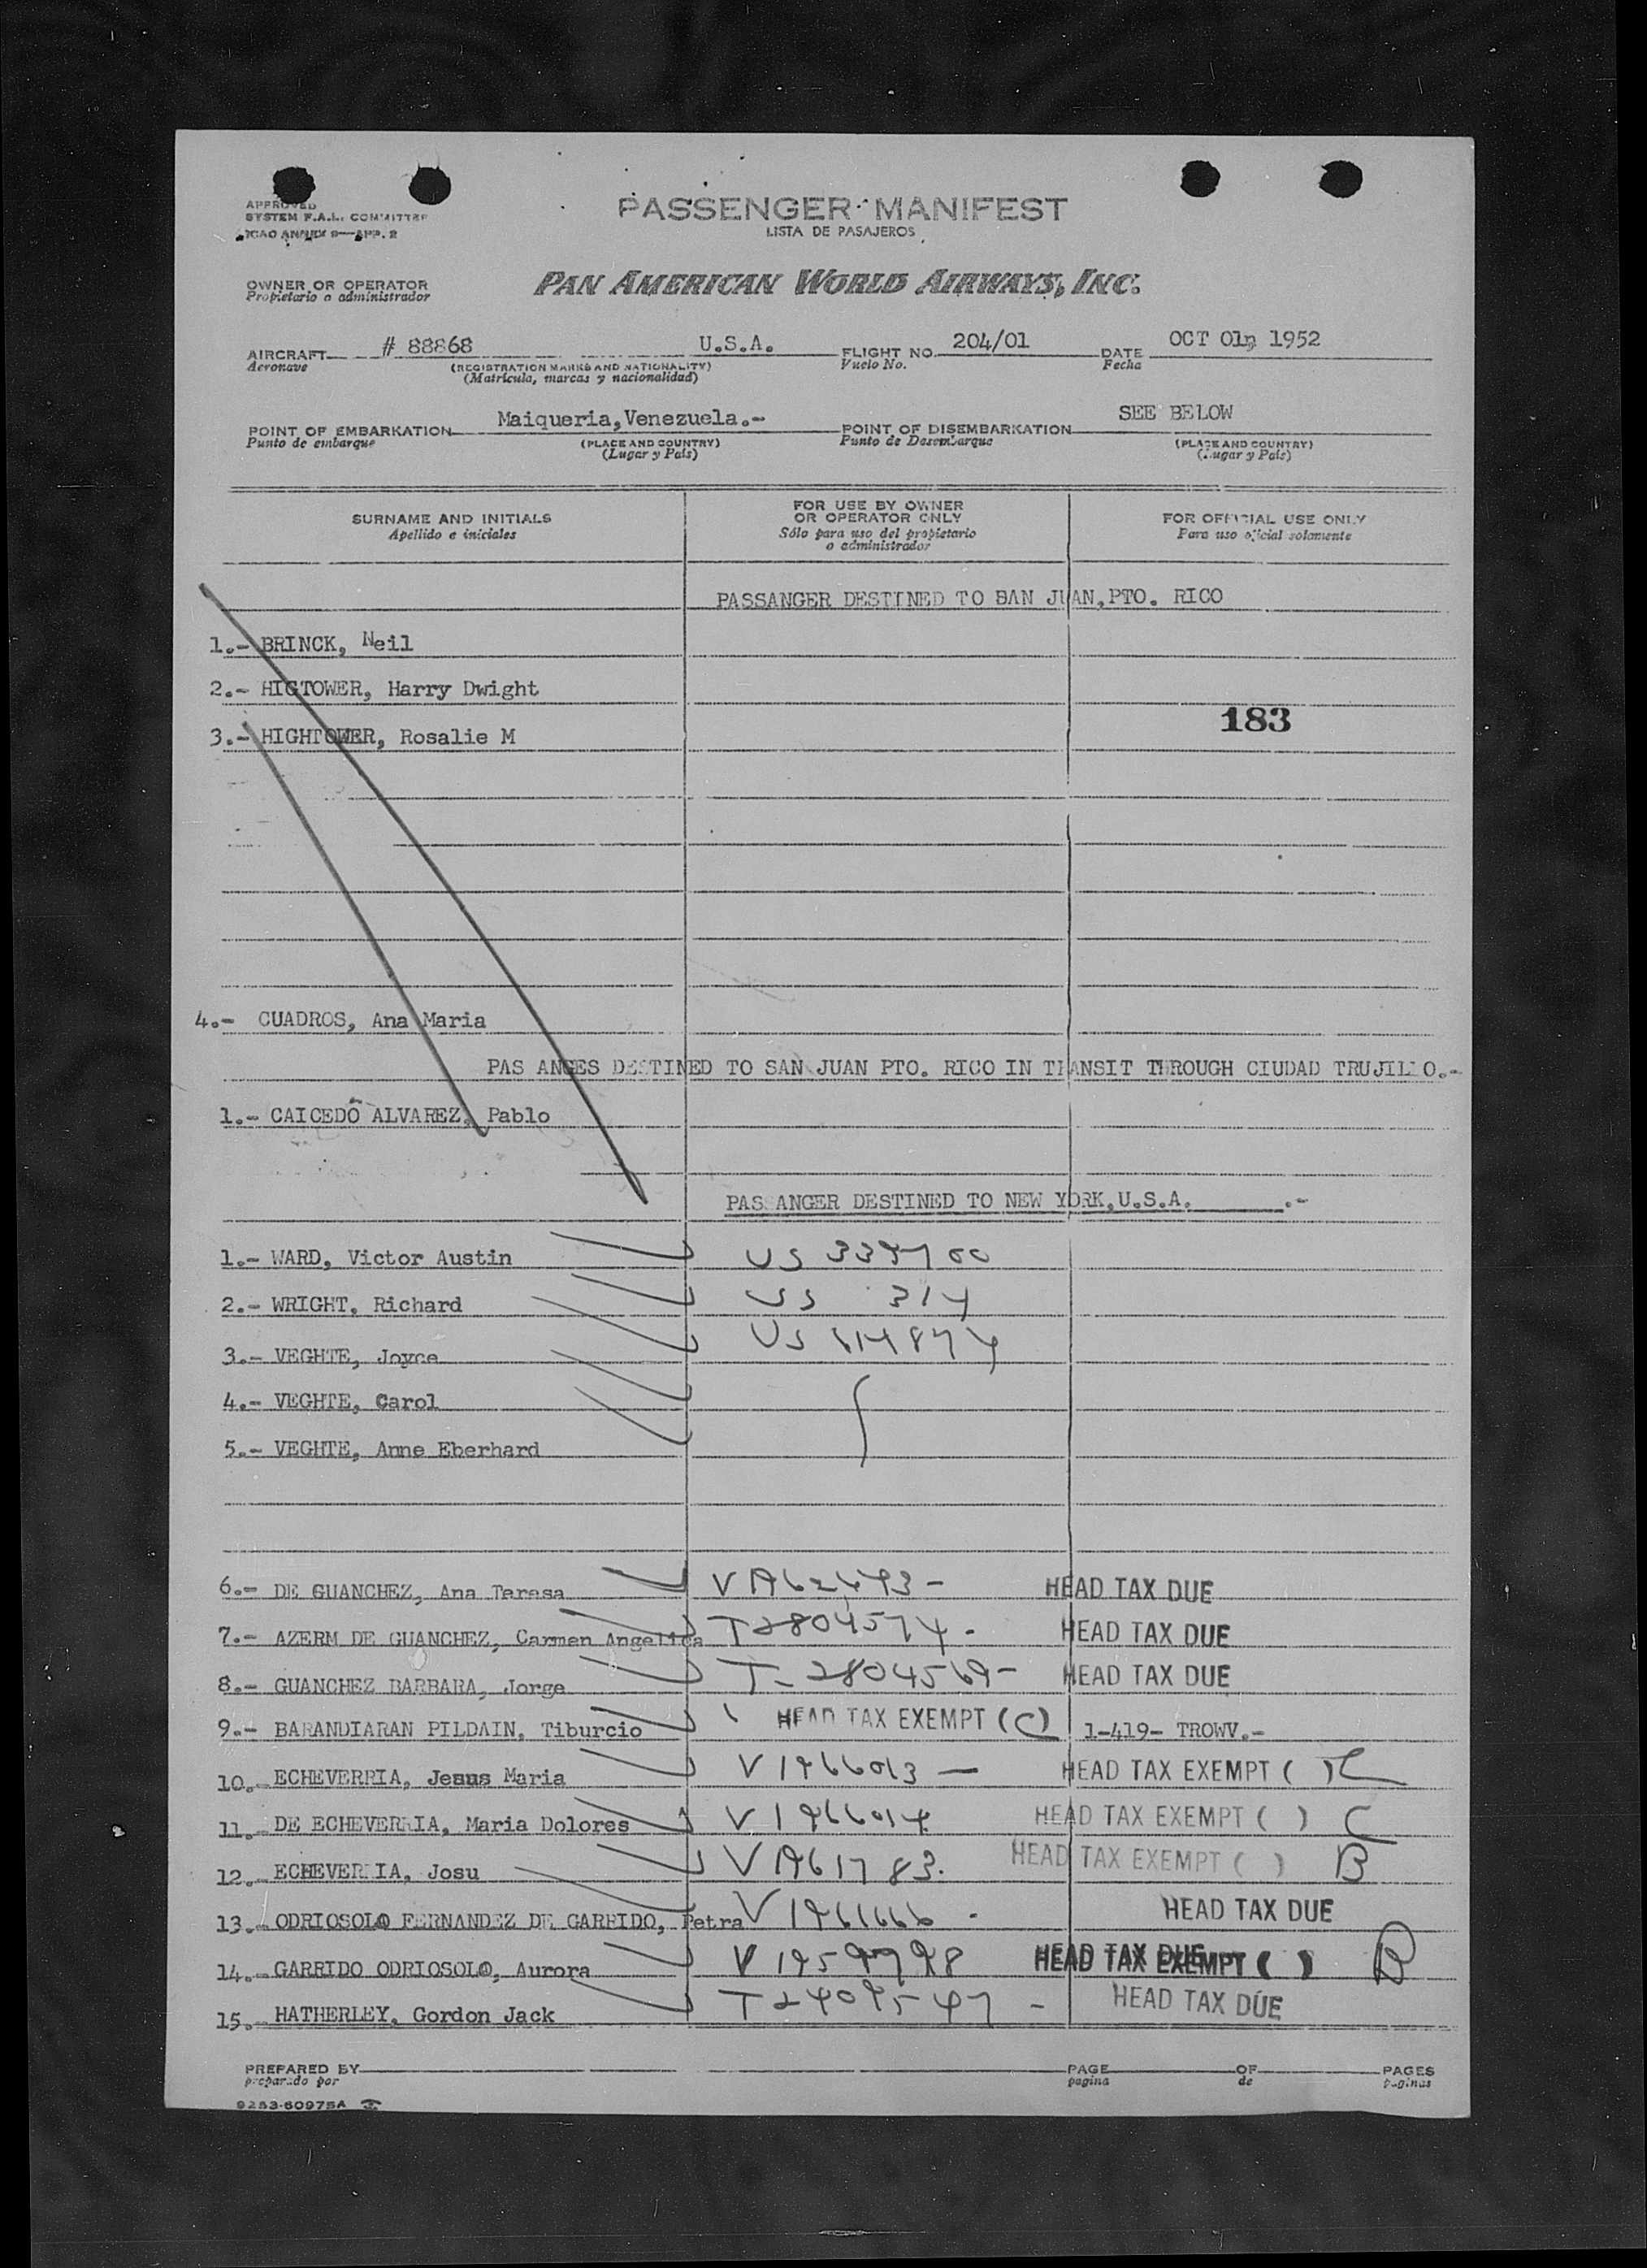 APPROVED
SYSTEM F.A.L. COMMITTEE
ICAO ANNEX 9—APP. 2
PASSENGER MANIFEST
LISTA DE PASAJEROS
OWNER OR OPERATOR
Propietario o administrador
PAN AMERICAN WORLD AIRWAYS, INC.
AIRCRAFT # 88868 U.S.A. FLIGHT NO. 204/01 DATE OCT 01, 1952
Aeronave (REGISTRATION MARKS AND NATIONALITY) Vuelo No. Fecha
(Matrícula, marcas y nacionalidad)
POINT OF EMBARKATION Maiqueria,Venezuela.- POINT OF DISEMBARKATION SEE BELOW
Punto de embarque (PLACE AND COUNTRY) Punto de Desembarque (PLACE AND COUNTRY)
(Lugar y País) (Lugar y País)
SURNAME AND INITIALS FOR USE BY OWNER OR OPERATOR ONLY FOR OFFICIAL USE ONLY
Apellido e iniciales Sólo para uso del propietario o administrador Para uso oficial solamente
PASSANGER DESTINED TO SAN JUAN,PTO. RICO
1.- BRINCK, Neil
2.- HIGTOWER, Harry Dwight
183
3.- HIGHTOWER, Rosalie M
4.- CUADROS, Ana Maria
PAS ANGES DESTINED TO SAN JUAN PTO. RICO IN TRANSIT THROUGH CIUDAD TRUJILLO.-
1.- CAICEDO ALVAREZ, Pablo
PASSANGER DESTINED TO NEW YORK,U.S.A. .-
1.- WARD, Victor Austin US
2.- WRIGHT, Richard US 314
3.- VEGHTE, Joyce US
4.- VEGHTE, Carol
5.- VEGHTE, Anne Eberhard
6.- DE GUANCHEZ, Ana Teresa HEAD TAX DUE
7.- AZERM DE GUANCHEZ, Carmen Angelica T2804574- HEAD TAX DUE
8.- GUANCHEZ BARBARA, Jorge T-2804569- HEAD TAX DUE
9.- BARANDIARAN PILDAIN, Tiburcio HEAD TAX EXEMPT (C) 1-419- TROWV.-
10.- ECHEVERRIA, Jesus Maria V1966013 — HEAD TAX EXEMPT ( ) C
11.- DE ECHEVERRIA, Maria Dolores V1966014 HEAD TAX EXEMPT ( ) C
12.- ECHEVERRIA, Josu HEAD TAX EXEMPT ( ) B
13.- ODRIOSOLO FERNANDEZ DE GARRIDO, Petra V1961666 - HEAD TAX DUE
14.- GARRIDO ODRIOSOLO, Aurora HEAD TAX DUE HEAD TAX EXEMPT ( ) B
15.- HATHERLEY, Gordon Jack HEAD TAX DUE
PREPARED BY PAGE OF PAGES
preparado por pagina de paginas
9253-60975A